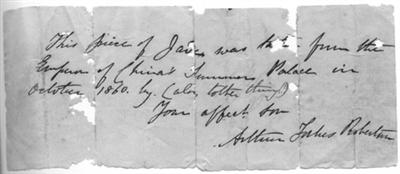 This piece of Jade was taken from the
Emperor of China's Summer Palace in
October 1860. by (alas, (other things)
Your affect. son
Arthur Forbes Robertson